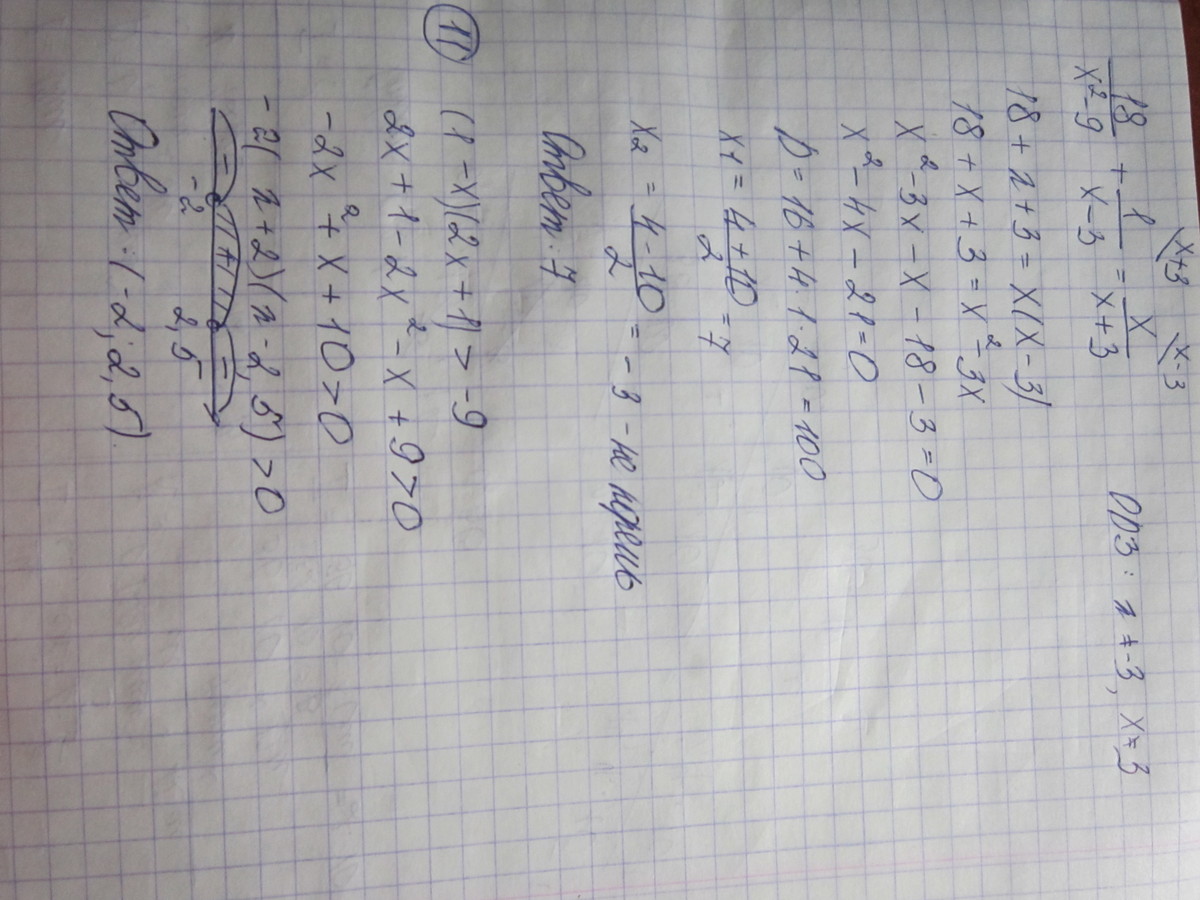 x+3 x-3
18/(x²-9) + 1/(x-3) = x/(x+3) ОДЗ: x≠-3, x≠3
18 + x + 3 = x(x-3)
18 + x + 3 = x²-3x
x²-3x-x-18-3=0
x²-4x-21=0
D=16+4·1·21=100
x₁=(4+10)/2=7
x₂=(4-10)/2=-3 - не
Ответ: 7
11 (1-x)(2x+1)>-9
2x+1-2x²-x+9>0
-2x²+x+10>0
-2(x+2)(x-2,5)>0
- + -
-2 2,5
Ответ: (-2; 2,5)